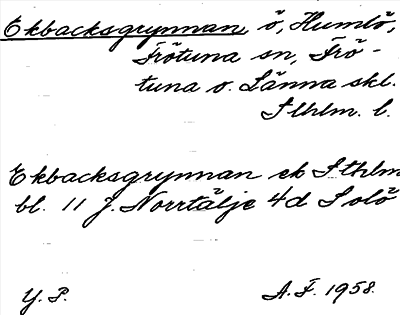 Ekbacksgrynnan, ö, Humlö,
Frötuna sn, Frö-
tuna o. Länna skl.
Sthlm. l.
Ekbacksgrynnan ek Sthlm
bl. 11 J. Norrtälje 4d Solö
Y. P. A. F. 1958.